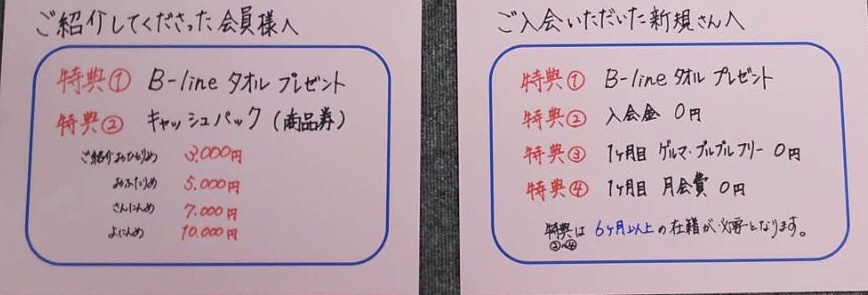 ご紹介してくださった会員様へ
特典① B-line タオル プレゼント
特典② キャッシュバック (商品券)
ご紹介おひとりめ 3,000円
おふたりめ 5.000円
さんにんめ 7.000円
よにんめ 10.000円
ご入会いただいた新規さんへ
特典① B-line タオル プレゼント
特典② 入会金 0円
特典③ 1ヶ月目 ゲルマ・ブルブルフリー 0円
特典④ 1ヶ月目 月会費 0円
特典は 6ヶ月以上の在籍が必要となります。
②〜④